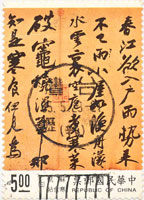 春江欲入戶雨勢来
不已雨小屋如漁舟濛
水雲裏空庖煮寒菜
破竈燒濕葦那
知是寒食但見烏
5.00
中華民國郵票
REPUBLIC OF CHINA